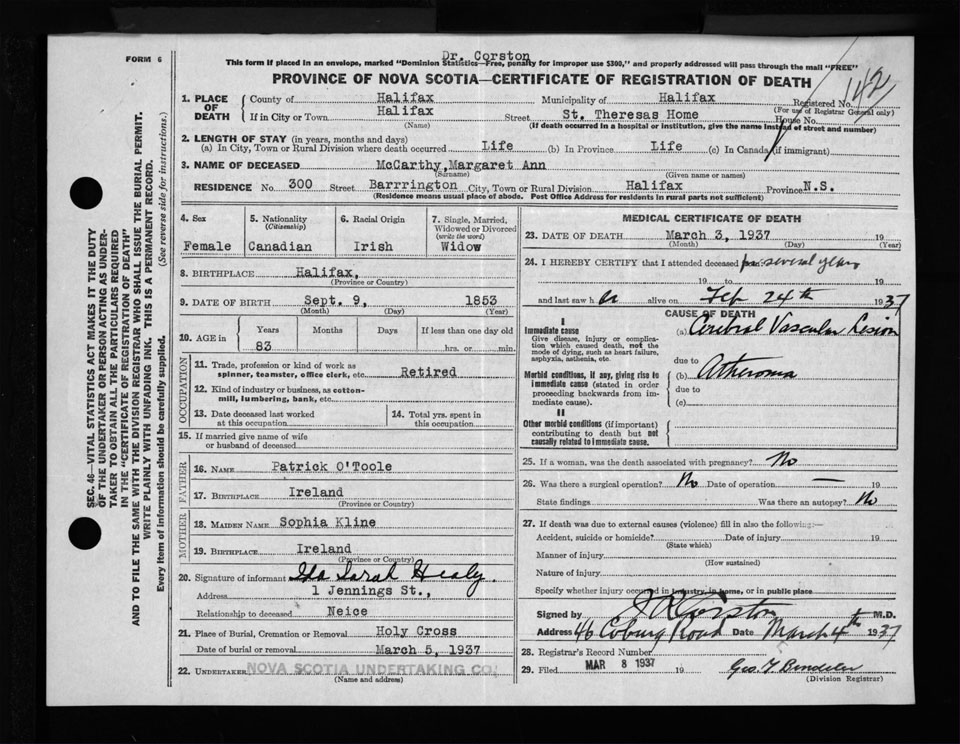 Dr. Corston
FORM 6
This form if placed in an envelope, marked "Dominion Statistics—Free, penalty for improper use $300," and properly addressed will pass through the mail "FREE"
PROVINCE OF NOVA SCOTIA—CERTIFICATE OF REGISTRATION OF DEATH
142
1. PLACE OF DEATH
County of Halifax Municipality of Halifax Registered No.
(For use of Registrar General only)
If in City or Town Halifax Street St. Theresas Home House No.
(Name) (If death occurred in a hospital or institution, give the name instead of street and number)
2. LENGTH OF STAY (in years, months and days)
(a) In City, Town or Rural Division where death occurred Life (b) In Province Life (c) In Canada (if immigrant)
3. NAME OF DECEASED McCarthy, Margaret Ann
(Surname) (Given name or names)
RESIDENCE No. 300 Street Barrrington City, Town or Rural Division Halifax Province N.S.
(Residence means usual place of abode. Post Office Address for residents in rural parts not sufficient)
SEC. 46—VITAL STATISTICS ACT MAKES IT THE DUTY
OF THE UNDERTAKER OR PERSON ACTING AS UNDER-
TAKER TO OBTAIN ALL THE PARTICULARS REQUIRED
IN THE "CERTIFICATE OF REGISTRATION OF DEATH"
AND TO FILE THE SAME WITH THE DIVISION REGISTRAR WHO SHALL ISSUE THE BURIAL PERMIT.
WRITE PLAINLY WITH UNFADING INK. THIS IS A PERMANENT RECORD.
Every item of information should be carefully supplied. (See reverse side for instructions.)
4. Sex
Female
5. Nationality
(Citizenship)
Canadian
6. Racial Origin
Irish
7. Single, Married,
Widowed or Divorced
(write the word)
Widow
8. BIRTHPLACE Halifax,
(Province or Country)
9. DATE OF BIRTH Sept. 9, 1853
(Month) (Day) (Year)
10. AGE in
Years Months Days If less than one day old
83 hrs. or min.
OCCUPATION
11. Trade, profession or kind of work as
spinner, teamster, office clerk, etc. Retired
12. Kind of industry or business, as cotton-
mill, lumbering, bank, etc.
13. Date deceased last worked
at this occupation
14. Total yrs. spent in
this occupation
15. If married give name of wife
or husband of deceased
FATHER
16. NAME Patrick O'Toole
17. BIRTHPLACE Ireland
(Province or Country)
MOTHER
18. MAIDEN NAME Sophia Kline
19. BIRTHPLACE Ireland
(Province or Country)
20. Signature of informant Ida Sarah Healy.
Address 1 Jennings St.,
Relationship to deceased Neice
21. Place of Burial, Cremation or Removal Holy Cross
Date of burial or removal March 5, 1937
22. UNDERTAKER NOVA SCOTIA UNDERTAKING CO.
(Name and address)
MEDICAL CERTIFICATE OF DEATH
23. DATE OF DEATH March 3, 1937 19
(Month) (Day) (Year)
24. I HEREBY CERTIFY that I attended deceased for several years
19 to 19
and last saw her alive on Feb 24th 1937
CAUSE OF DEATH
I
Immediate cause
Give disease, injury or complica-
tion which caused death, not the
mode of dying, such as heart failure,
asphyxia, asthenia, etc.
(a) Cerebral Vascular Lesion
due to
Morbid conditions, if any, giving rise to
immediate cause (stated in order
proceeding backwards from im-
mediate cause).
(b) Atheroma
due to
(c)
II
Other morbid conditions (if important)
contributing to death but not
causally related to immediate cause.
25. If a woman, was the death associated with pregnancy? No
26. Was there a surgical operation? No Date of operation — 19
State findings Was there an autopsy? No
27. If death was due to external causes (violence) fill in also the following:—
Accident, suicide or homicide? Date of injury 19
(State which)
Manner of injury
(How sustained)
Nature of injury
Specify whether injury occurred in industry, in home, or in public place
Signed by J R Corston M.D.
Address 46 Coburg Road Date March 4th 1937
28. Registrar's Record Number
29. Filed MAR 8 1937 19 Geo. T.
(Division Registrar)